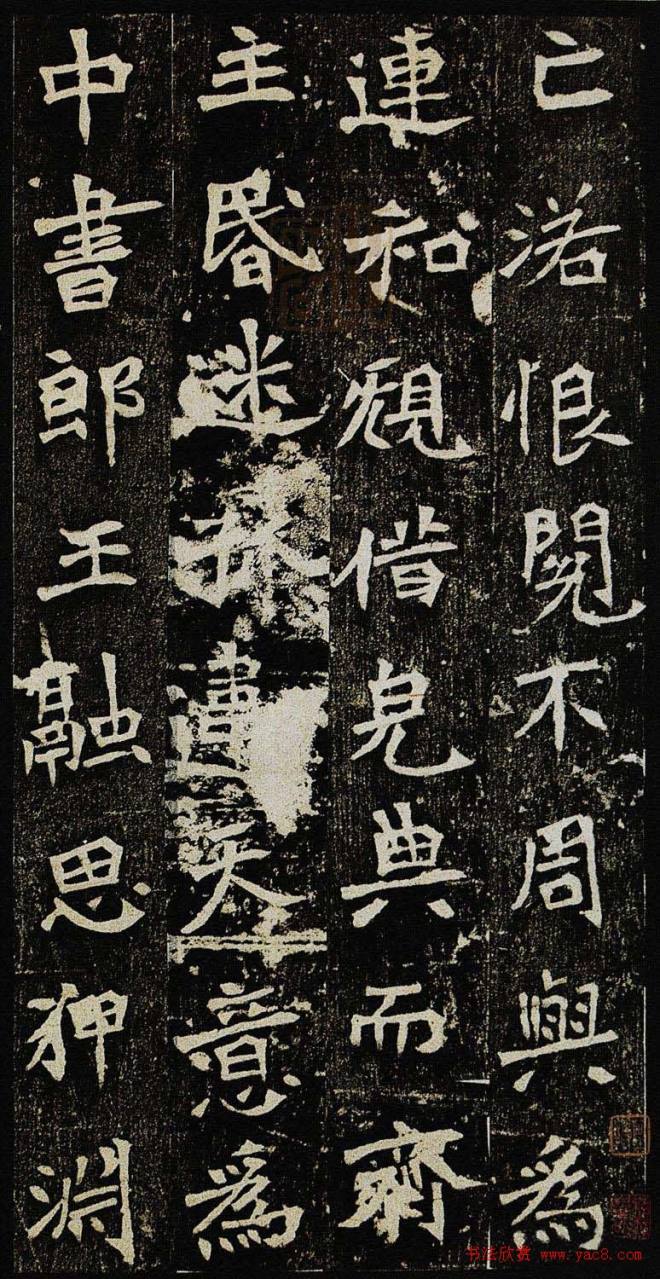 亡洛恨閱不周與為
連和規借皃典而齊
主昬迷孤天意為
中書郎王融思狎淵
书法欣赏 www.yac8.com